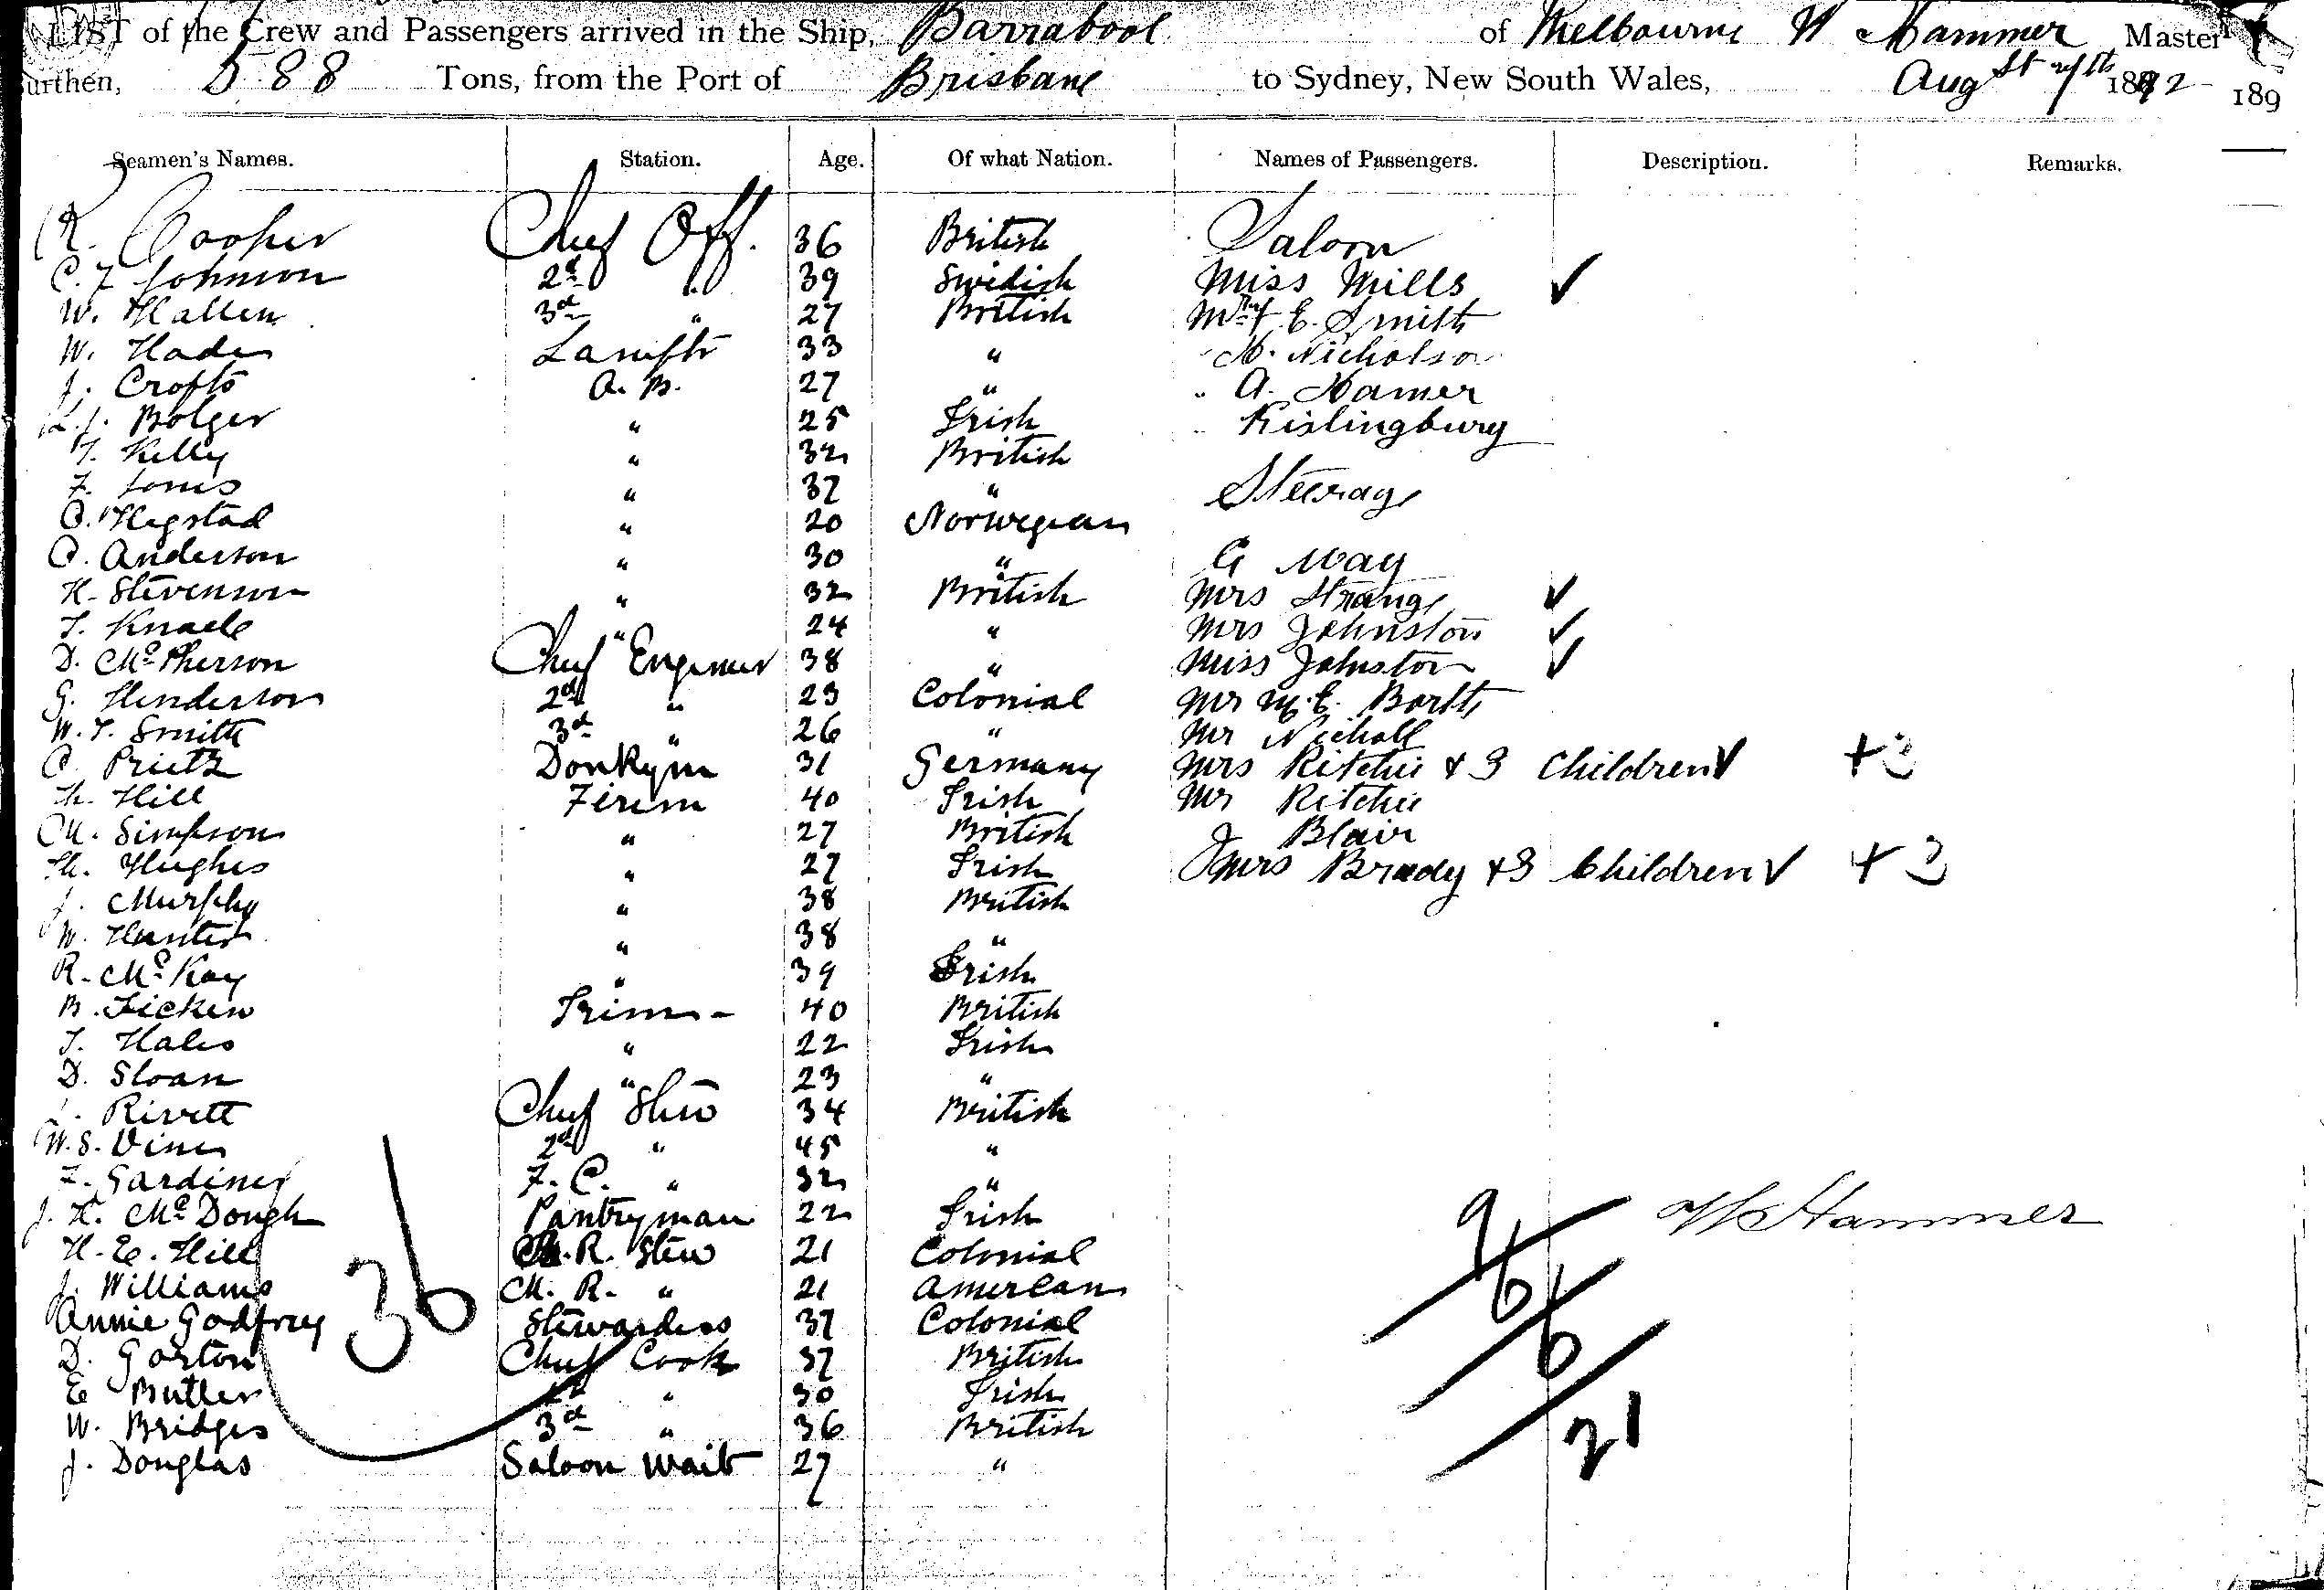 LIST of the Crew and Passengers arrived in the Ship, Barrabool of Melbourne W Hammer Master
urthen, 588 Tons, from the Port of Brisbane to Sydney, New South Wales, Augst 1892 189
Seamen's Names. Station. Age. Of what Nation. Names of Passengers. Description. Remarks.
R. Cooper Chief Off. 36 British Saloon
C. F Johnson 2d " 39 Swedish Miss Mills ✓
W. Hallen 3d " 27 British E. Smith
W. Hades Lamptr 33 " Nicholson
J. Crofts A. B. 27 " " A. Hamer
L. J. Bolger " 25 Irish " Kislingbury
T. Kelly " 32 British
F. Jones " 37 " Steerage
O. Hegstad " 20 Norwegian
O. Anderson " 30 " G Way
H. Stevenson " 32 British Mrs Strange ✓
T. " 24 " Mrs Johnston ✓
D. McPherson Chief Engineer 38 " Miss Johnston ✓
G. Henderson 2d " 23 Colonial Mr
W. T. Smith 3d " 26 " Mr Nicholl
Prietz Donkym 31 Germany Mrs Ritchie + 3 Children ✓ + 3
Hill Firem 40 Irish Mr Ritchie
M. Simpson " 27 British Blair
Hughes " 27 Irish Mrs Brady + 3 Children ✓ + 3
J. Murphy " 38 British
W. Hunter " 38 "
R. McKay " 39 Irish
B. Ficken Trimr 40 British
T. Hales " 22 Irish
D. Sloan " 23 "
Rivett Chief Stew 34 British
W. S. Vines 2d " 45 "
F. Gardiner F. C. " 32 "
J. H. McDongh Pantryman 22 Irish 9 W Hammer
H. E. Hill R. Stew 21 Colonial
J. Williams M. R. " 21 American 6
Annie Godfrey Stewardess 37 Colonial
36
D. Gorton Chief Cook 37 British 6
E Butler 2d " 30 Irish
W. Bridges 3d " 36 British 21
J. Douglas Saloon Wait 27 "